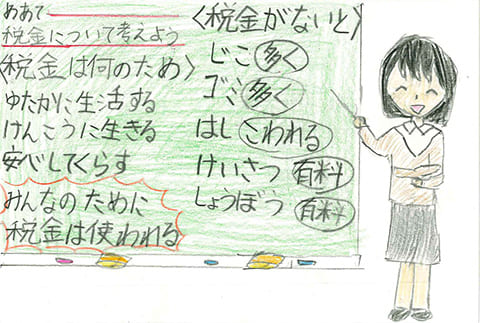 めあて
税金について考えよう
〈税金は何のため〉
ゆたかに生活する
けんこうに生きる
安心してくらす
みんなのために
税金は使われる
〈税金がないと〉
じこ 多く
ゴミ 多く
はし こわれる
けいさつ 有料
しょうぼう 有料